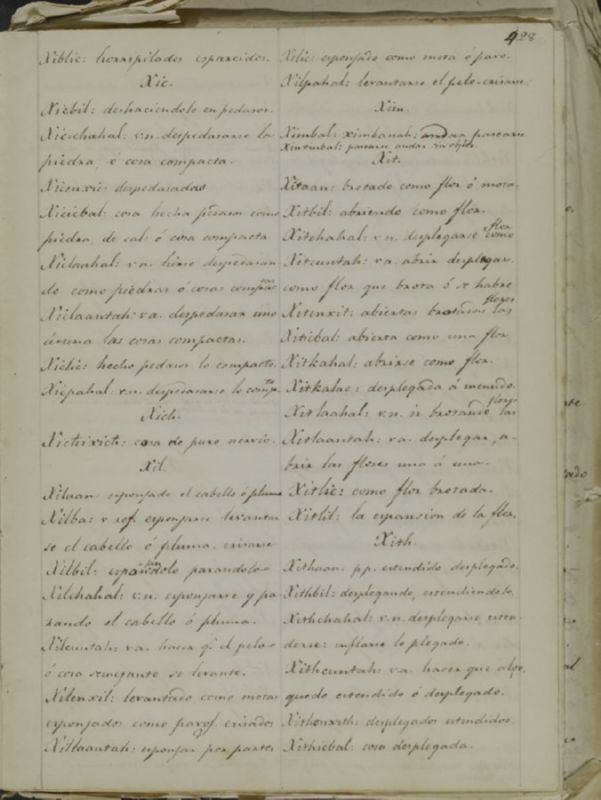 428
Xiblic: horripilados esparcidos.
Xic.
Xicbil: deshaciendolo en pedasos.
Xicchahal: v.n. despedasarse la
piedra, ó cosa compacta.
Xicenxic: despedasados
Xicicbal: cosa hecha pedasos como
piedra, de cal: ó cosa compacta
Xiclaahal: v.a. despedasan
do como piedras ó cosas compactas
Xiclaantah: v.a. despedasar uno
ánuma las cosas compactas.
Xiclic: hecho pedasos lo compacto.
Xicpahal: v.n. despedasarse lo compto.
Xich.
Xichixich: cosa de puro nervio.
Xil.
Xilaan: esponjado el cabello ó pluma
Xilba: v. rof. esponjarse levantar
se el cabello ó pluma. erisarse
Xilbil: esponjandolo parandolo
Xilchahal: v.n. esponjarse y pa
rando el cabello ó pluma.
Xilcuntah: v.a. hacer q.e el pelo
ó cosa semejante se levante.
Xilenxil: levantado como motas
esponjados como pavos. erisados
Xillaantah: esponjar por partes
Xilic: esponjado como mota ó pavo.
Xilpahal: levantarse el pelo. erisarse
Xim.
Ximbal: ximbanah: andar pasearse
Ximximbal: pasearse andar sin objeto
Xit.
Xitaan: brotado como flor ó mota.
Xitbil: abriendo como flor.
Xitchahal: v.n. desplegarse como flor
Xitcuntah: v.a. abrir desplegar.
como flor que brota ó se habre
Xitenxit: abiertas brotadas las flores
Xiticbal: abierta como una flor
Xitkahal: abrirse como flor.
Xitkalac: desplegada á menudo
Xitlaahal: v.n. ir brotando las flores
Xitlaantah: v.a. desplegar, a-
brir las flores una á una.
Xitlic: como flor brotada.
Xitlil: la espansion de la flor.
Xith.
Xithaan: pp. estendido desplegado.
Xithbil: desplegando, estendiendolo
Xithchahal: v.n. desplegarse, esten
derse: inflarse lo plegado.
Xithcuntah: v.a. hacer que algo.
quede estendido ó desplegado.
Xithenxith: desplegados estendidos.
Xithicbal: cosa desplegada.